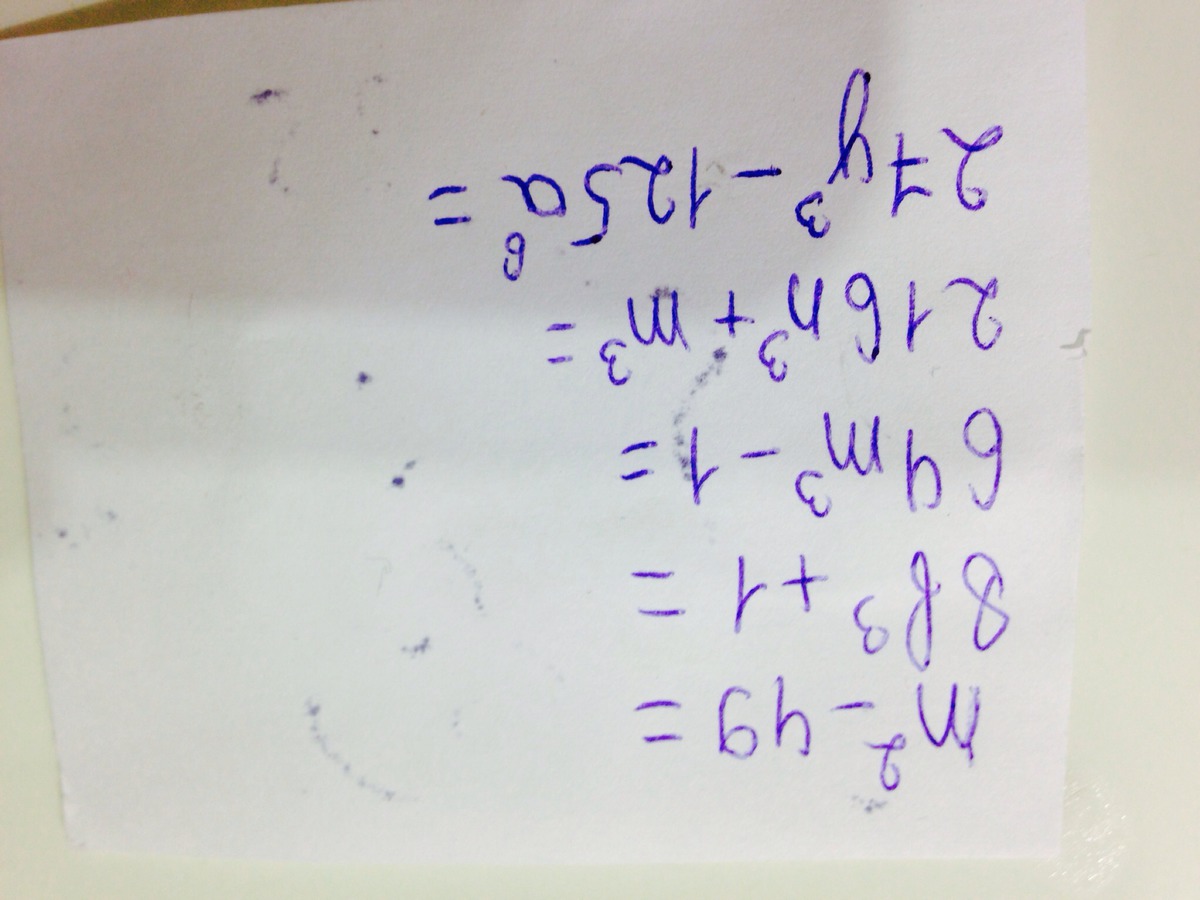 m² - 49 =
8b³ + 1 =
64m³ - 1 =
216n³ + m³ =
27y³ - 125a⁶ =